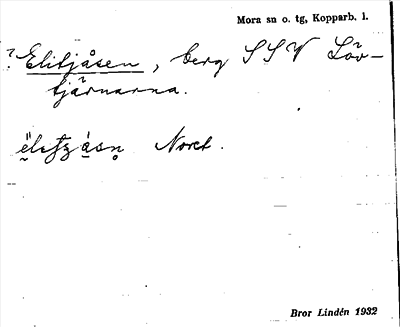 Mora sn o. tg, Kopparb. l.
? Elitjåsen, berg SSV Löv-
tjärnarna.
Noret.
Bror Lindén 1932